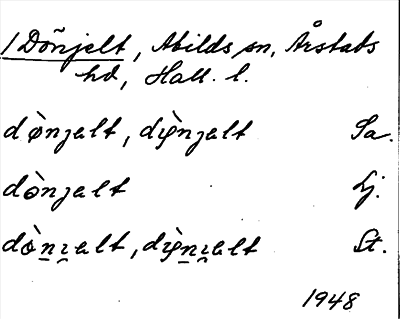 1 Dönjelt, Abilds sn, Årstads
hd, Hall. l.
dø̀njalt, diø̀njalt Sa.
dònjalt Lj.
dònjalt, diø̀njalt St.
1948